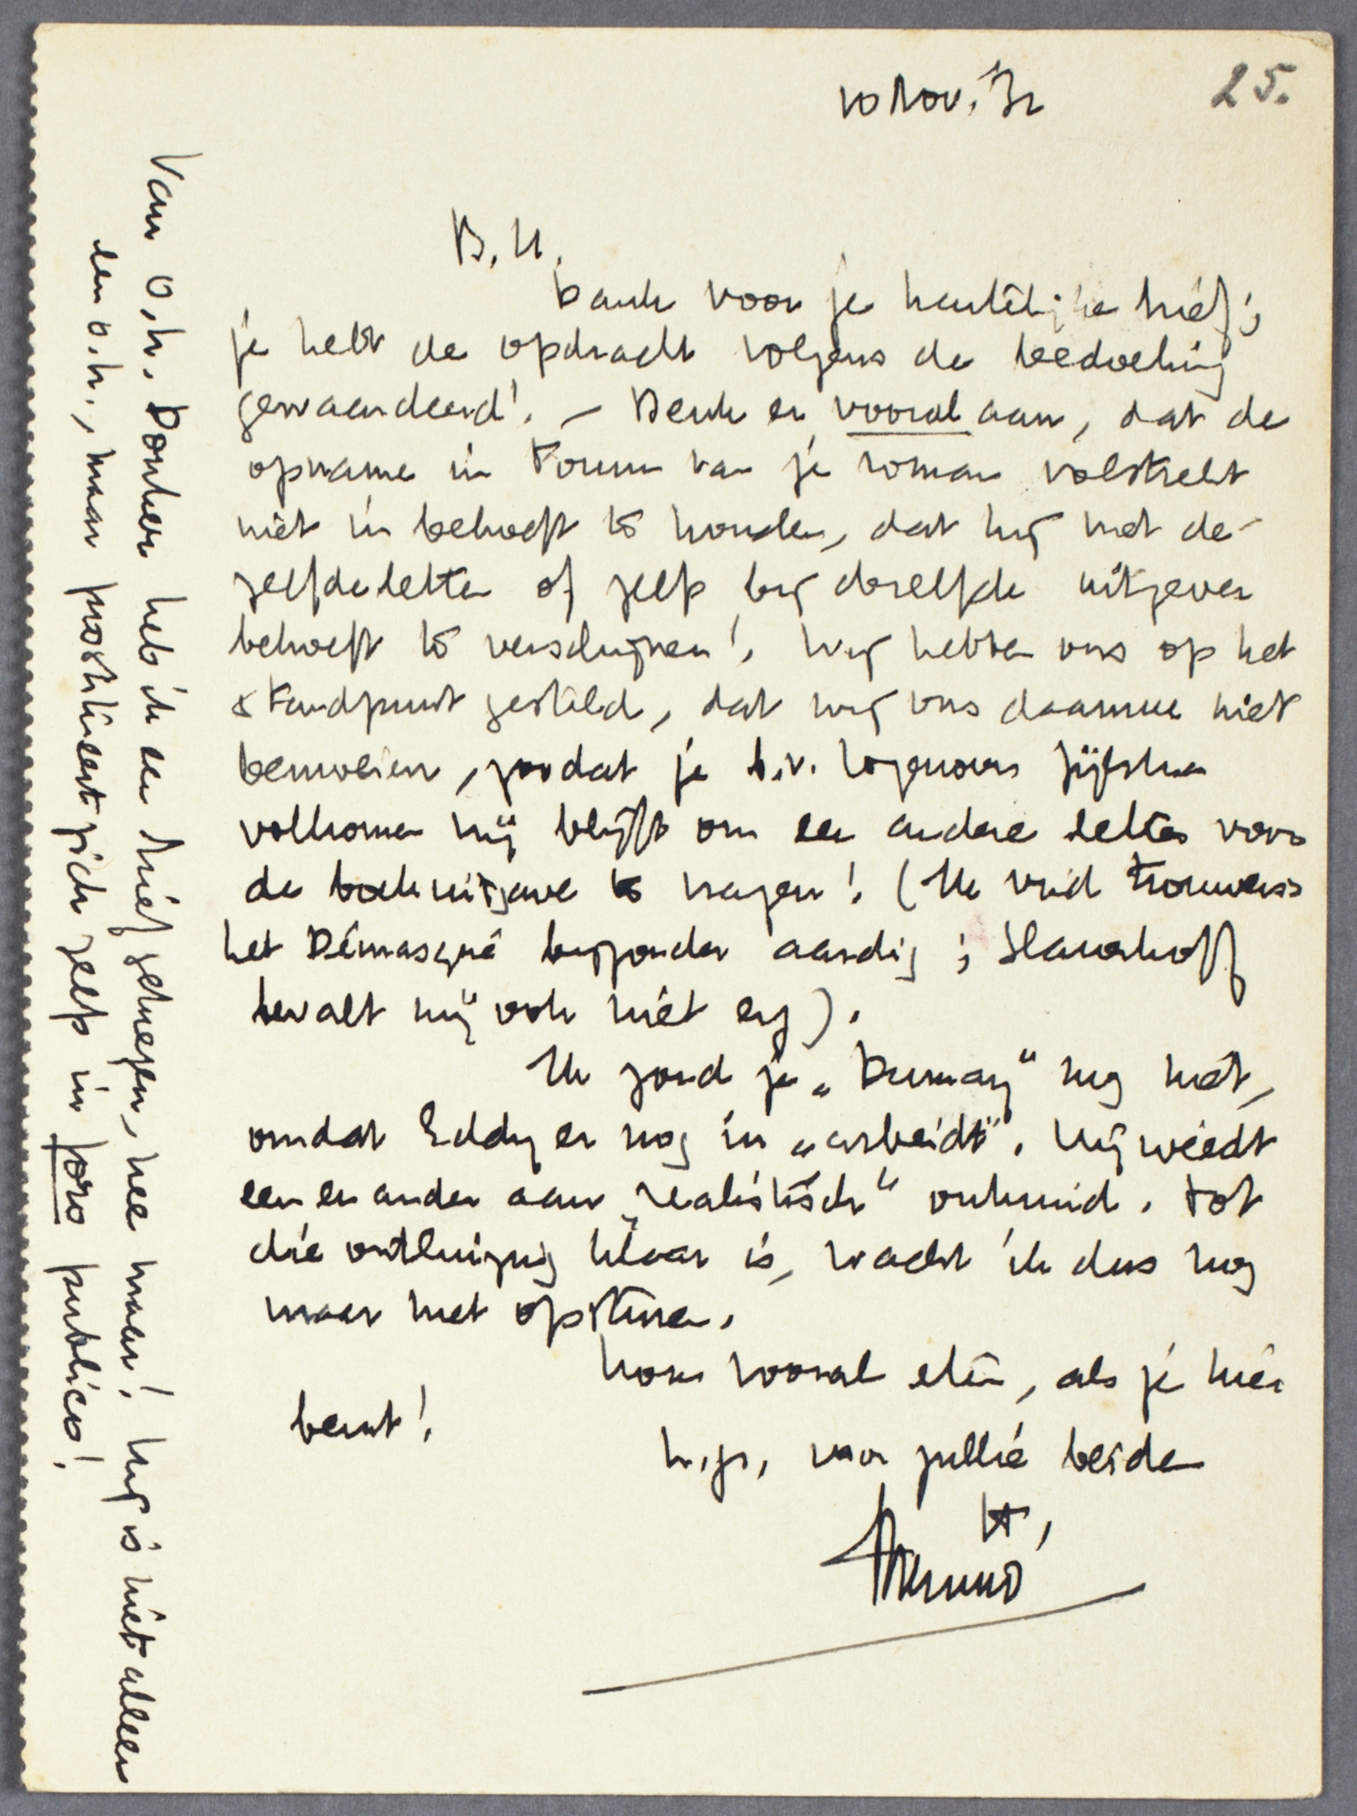 25.
10 Nov. '32
B. H.
Dank voor je hartelijke brief;
je hebt de opdracht volgens de bedoeling
gewaardeerd! – Denk er vooral aan, dat de
opname in Forum van je roman volstrekt
niet in behoeft te houden, dat hij met de-
zelfde letter of zelfs bij dezelfde uitgever
behoeft te verschijnen! Wij hebben ons op het
standpunt gesteld, dat wij ons daarmee niet
bemoeien, zoodat je b.v. tegenover Zijlstra
volkomen vrij blijft om een andere letter voor
de boekuitgave te vragen! (Ik vind trouwens
het Démasqué bijzonder aardig; Slauerhoff
bevalt mij ook niet erg).
Ik zond je „Dumay" nog niet,
omdat Eddy er nog in „arbeidt". Hij wiedt
een en ander aan „realistisch" onkruid. Tot
die ontluizing klaar is, wacht ik dus nog
maar met opsturen.
Kom vooral eten, als je hier
bent!
h.gr. voor jullie beiden
tt,
Menno
Van o.h. Donker heb ik een brief gekregen, nee maar! Hij is niet alleen
een o.h., maar prostitueert zich zelfs in foro publico!